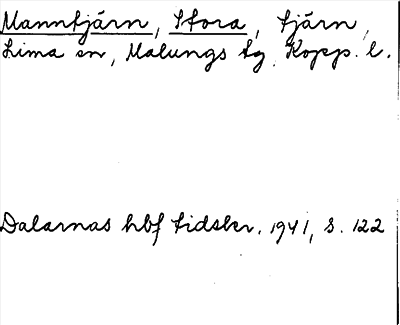 Manntjärn, Stora, tjärn,
Lima sn, Malungs tg. Kopp. l.
Dalarnas hbf tidskr. 1941, s. 122